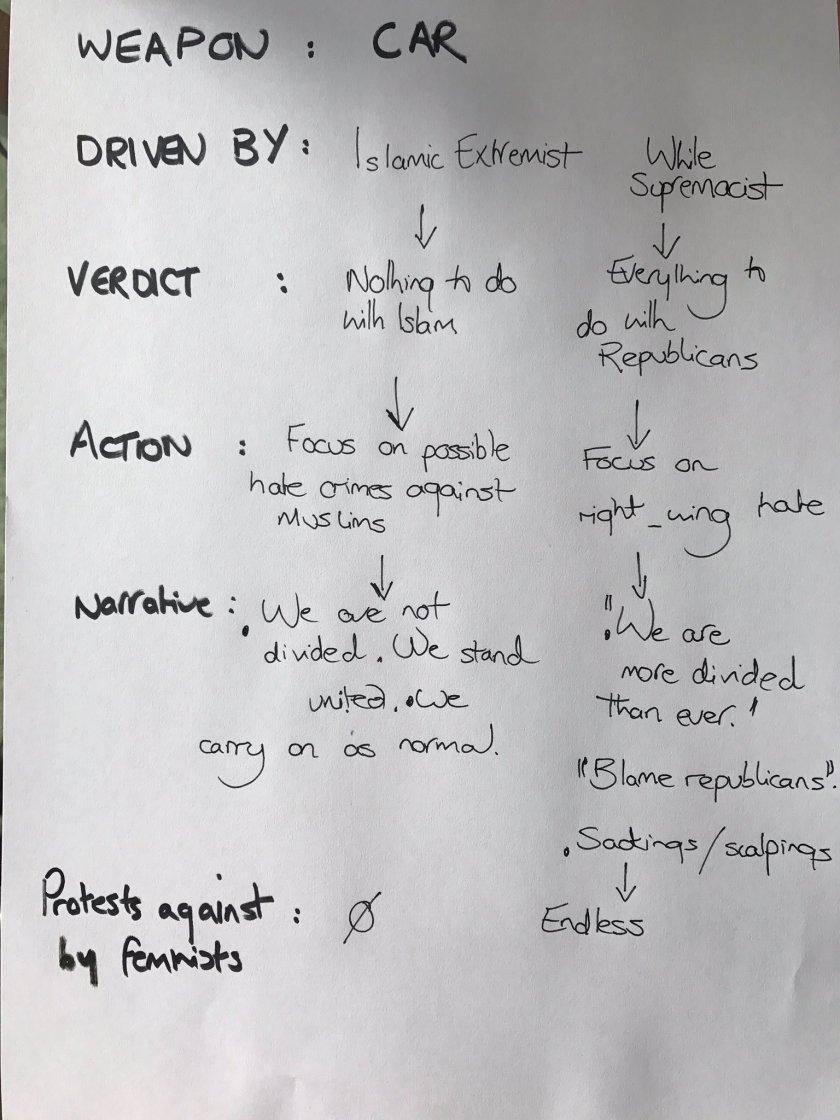 WEAPON : CAR
DRIVEN BY : Islamic Extremist White
Supremacist
VERDICT : Nothing to do Everything to
with Islam do with
Republicans
ACTION : Focus on possible Focus on
hate crimes against right-wing hate
Muslims
Narrative : . We are not ". We are
divided. We stand more divided
united. . We than ever."
carry on as normal.
"Blame republicans".
. Sackings/scalpings
Protests against : Ø Endless
by feminists